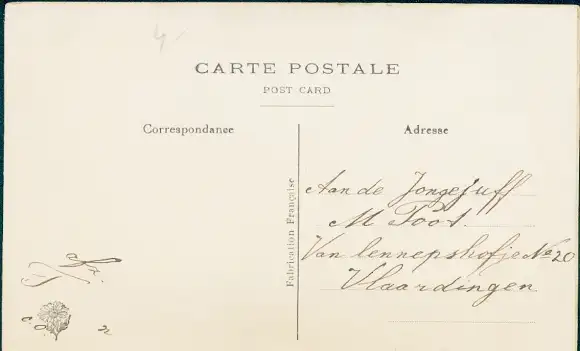 4
CARTE POSTALE
POST CARD
Correspondanee
Adresse
Fabrication Française
Aan de Jongejuff
M Poot.
Van lennepshofje No 20
Vlaardingen